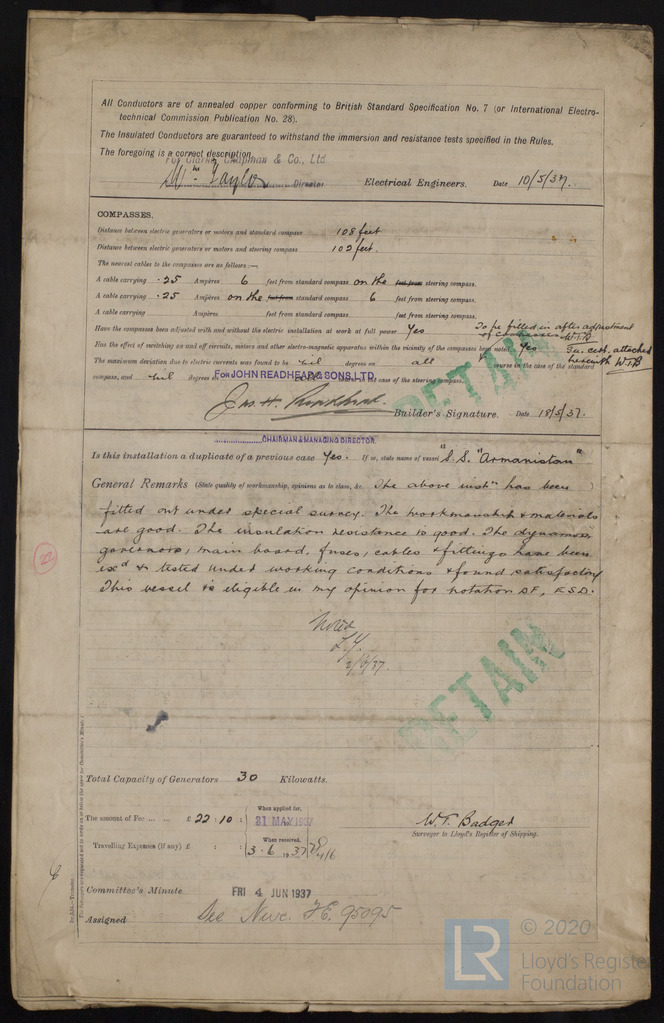 All Conductors are of annealed copper conforming to British Standard Specification No. 7 (or International Electro-
technical Commission Publication No. 28).
The Insulated Conductors are guaranteed to withstand the immersion and resistance tests specified in the Rules.
The foregoing is a correct description.
For Clarke, Chapman & Co., Ltd
Wm Taylor Director Electrical Engineers. Date 10/5/37.
COMPASSES.
Distance between electric generators or motors and standard compass 108 feet
Distance between electric generators or motors and steering compass 102 feet.
The nearest cables to the compasses are as follows:—
A cable carrying .25 Ampères 6 feet from standard compass on the feet from steering compass.
A cable carrying .25 Ampères on the feet from standard compass 6 feet from steering compass.
A cable carrying Ampères feet from standard compass feet from steering compass.
Have the compasses been adjusted with and without the electric installation at work at full power Yes
To be filled in after adjustment of compasses W.T.B
Has the effect of switching on and off circuits, motors and other electro-magnetic apparatus within the vicinity of the compasses been noted Yes
cert. attached herewith WTB
The maximum deviation due to electric currents was found to be nil degrees on all course in the case of the standard
compass, and nil degrees on course in the case of the steering compass.
For JOHN READHEAD & SONS, LTD.
Jas. H. Readhead. Builder's Signature. Date 18/5/37.
CHAIRMAN & MANAGING DIRECTOR.
RETAIN
Is this installation a duplicate of a previous case Yes. If so, state name of vessel "S.S. "Armanistan"
General Remarks (State quality of workmanship, opinions as to class, &c. The above instn has been )
fitted out under special survey. The workmanship & materials
are good. The insulation resistance is good. The dynamos
governors, main board, fuses, cables & fittings have been
exd & tested under working conditions & found satisfactory
This vessel is eligible in my opinion for notation DF, ESD.
22
Noted
2/6/37.
RETAIN
Total Capacity of Generators 30 Kilowatts.
The amount of Fee ... ... £ 22 : 10 :
When applied for,
31 MAY 1937
Travelling Expenses (if any) £ : :
When received.
3.6.1937
W.T. Badger
Surveyor to Lloyd's Register of Shipping.
Committee's Minute FRI 4 JUN 1937
Assigned See Nwc. F.E. 95095
LR
© 2020
Lloyd's Register
Foundation